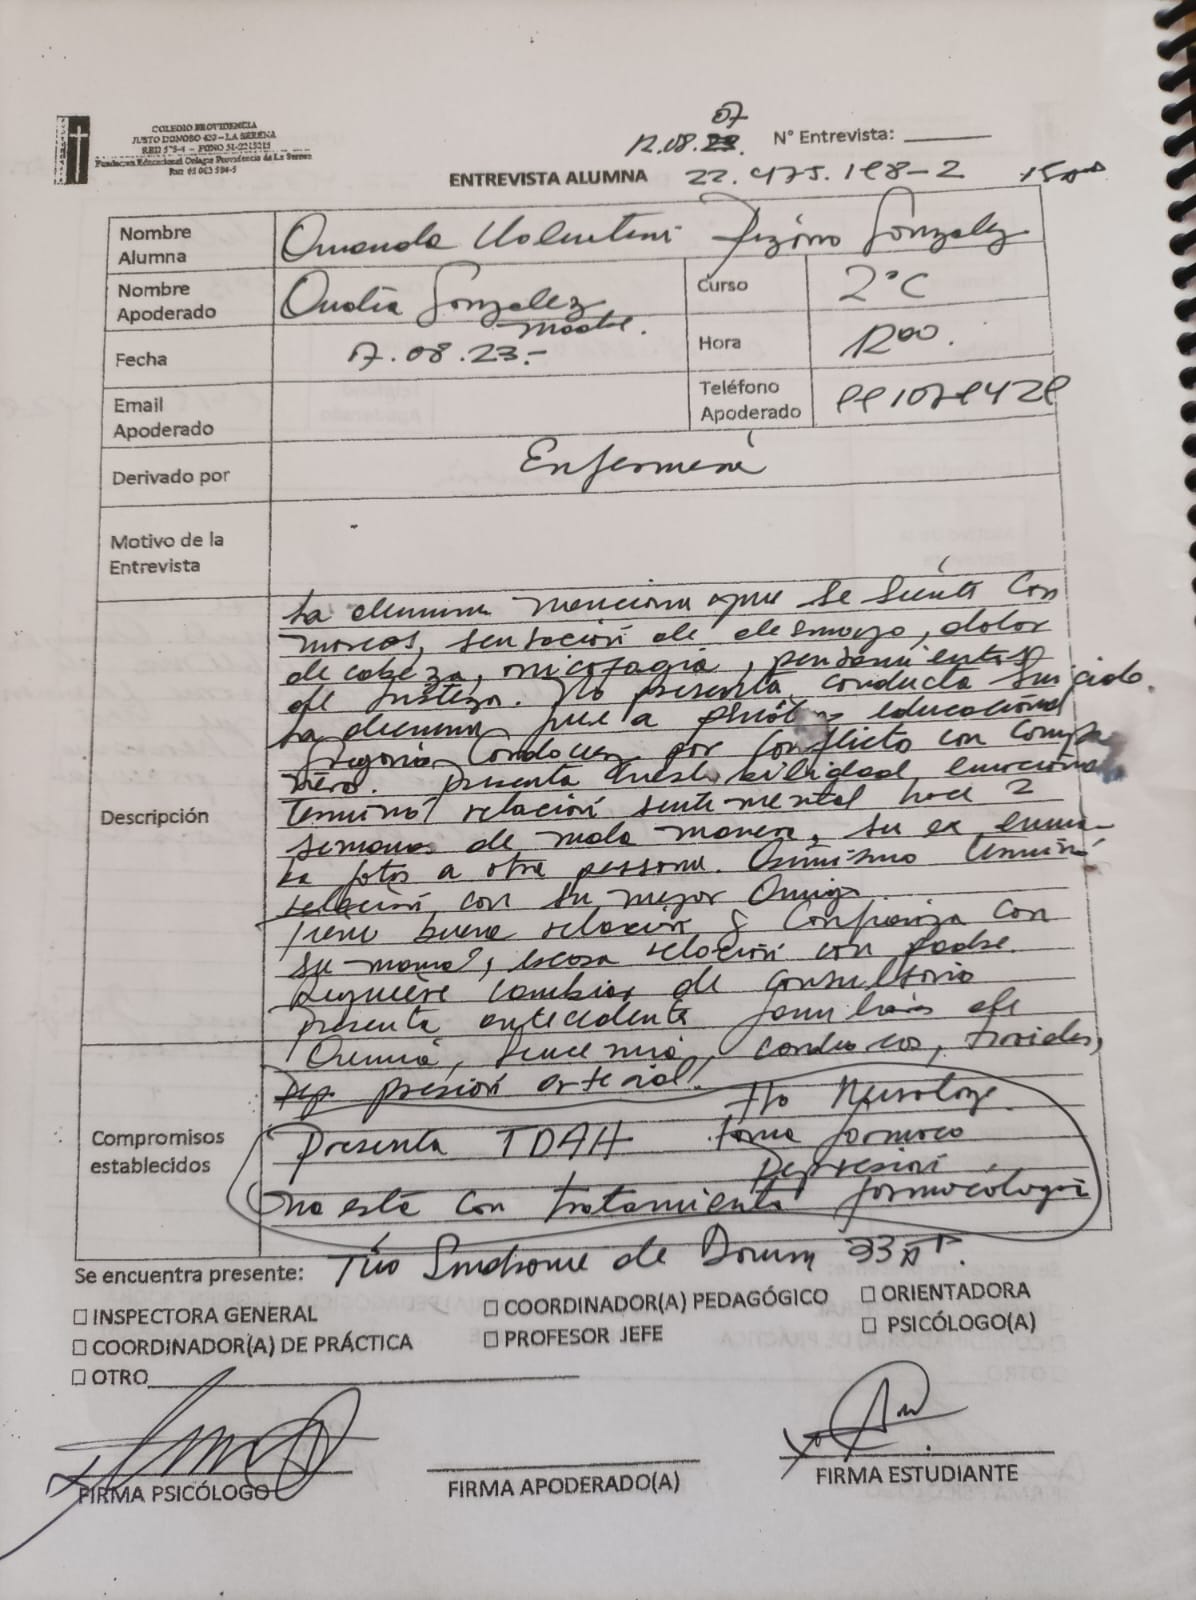 COLEGIO PROVIDENCIA
JUSTO DONOSO 420 – LA SERENA
Fundacion Educacional Colegio Providencia de La Serena
07
12.08. N° Entrevista:
ENTREVISTA ALUMNA 15
Nombre Alumna
Gonzalez
Nombre Apoderado
Gonzalez
Madre.
Curso
2°C
Fecha
17.08.23.-
Hora
12:00.
Email Apoderado
Teléfono Apoderado
Derivado por
Enfermería
Motivo de la Entrevista
Descripción
La alumna menciona que se siente con
mareos, sensación de desmayo, dolor
de cabeza, onicofagia, pensamientos
de tristeza. No presenta conducta suicida.
La alumna fue a educacional
por conflicto con compa-
ñero. presenta inestabilidad emocional
terminó relación sentimental hace 2
semanas de mala manera, su ex
fotos a otra persona. Asimismo terminó
relación con su mejor amiga
Tiene buena relación y confianza con
su mamá, escasa relación con padre.
Requiere cambiar de consultorio
presenta antecedente familiares de
Anemia, leucemia, tiroides,
presión arterial.
Compromisos
establecidos
Neurologo
Presenta TDAH toma farmaco
Depresión
no está con tratamiento farmacológico
Se encuentra presente: Tío Sindrome de Down 33
☐ INSPECTORA GENERAL ☐ COORDINADOR(A) PEDAGÓGICO ☐ ORIENTADORA
☐ COORDINADOR(A) DE PRÁCTICA ☐ PROFESOR JEFE ☐ PSICÓLOGO(A)
☐ OTRO
FIRMA PSICÓLOGO FIRMA APODERADO(A) FIRMA ESTUDIANTE